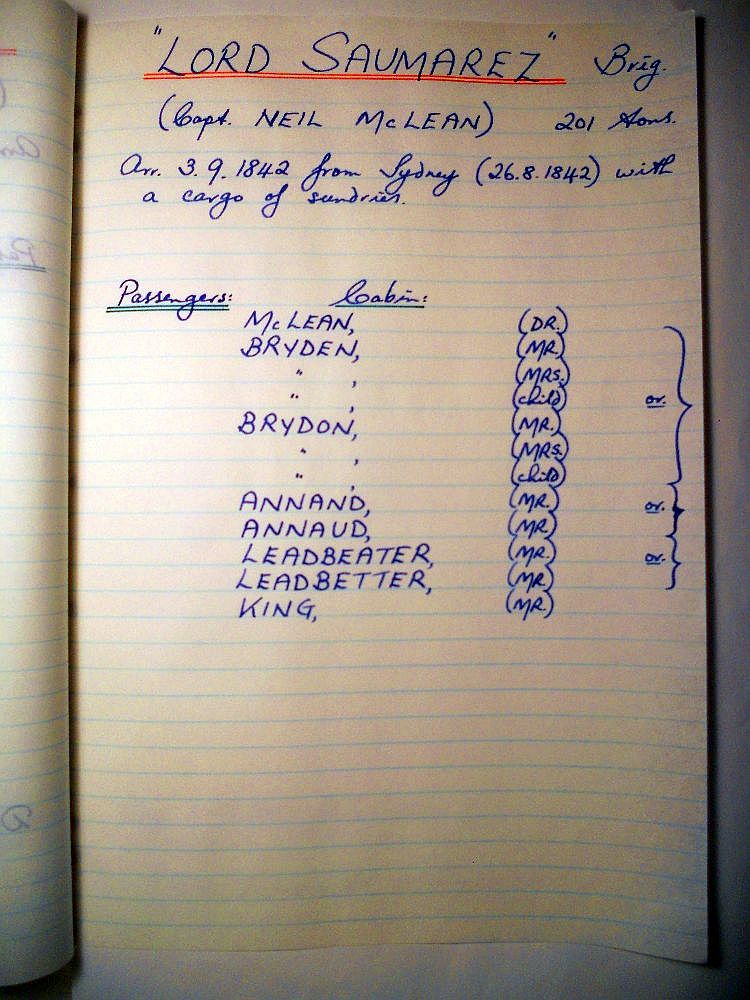 "LORD SAUMAREZ" Brig.
(Capt. NEIL McLEAN) 201 tons.
Arr. 3.9.1842 from Sydney (26.8.1842) with
a cargo of sundries.
Passengers: Cabin:
McLEAN, (DR.)
BRYDEN, (MR.)
" , (MRS.)
" , (child) or.
BRYDON, (MR.)
" , (MRS.)
" , (child)
ANNAND, (MR.) or.
ANNAUD, (MR.)
LEADBEATER, (MR.) or.
LEADBETTER, (MR.)
KING, (MR.)